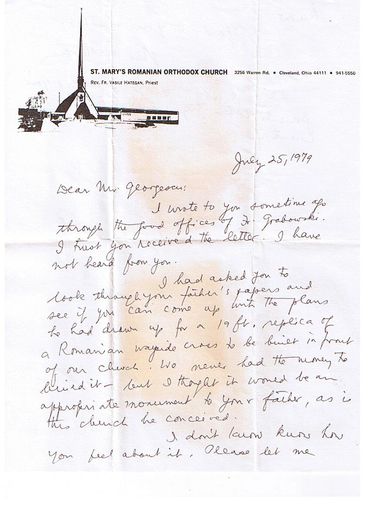 ST. MARY'S ROMANIAN ORTHODOX CHURCH 3256 Warren Rd. • Cleveland, Ohio 44111 • 941-5550
REV. FR. VASILE HATEGAN, Priest
July 25, 1979
Dear Mr. Georgescu:
I wrote to you sometime ago
through the good offices of Fr. Grabowski.
I trust you received the letter. I have
not heard from you.
I had asked you to
look through your father's papers and
see if you can come up with the plans
he had drawn up for a 10 ft. replica of
a Romanian wayside cross to be built in front
of our church. We never had the money to
build it – but I thoght it would be an
appropriate monument to your father, as is
this church he conceived.
I don't know know how
you feel about it. Please let me